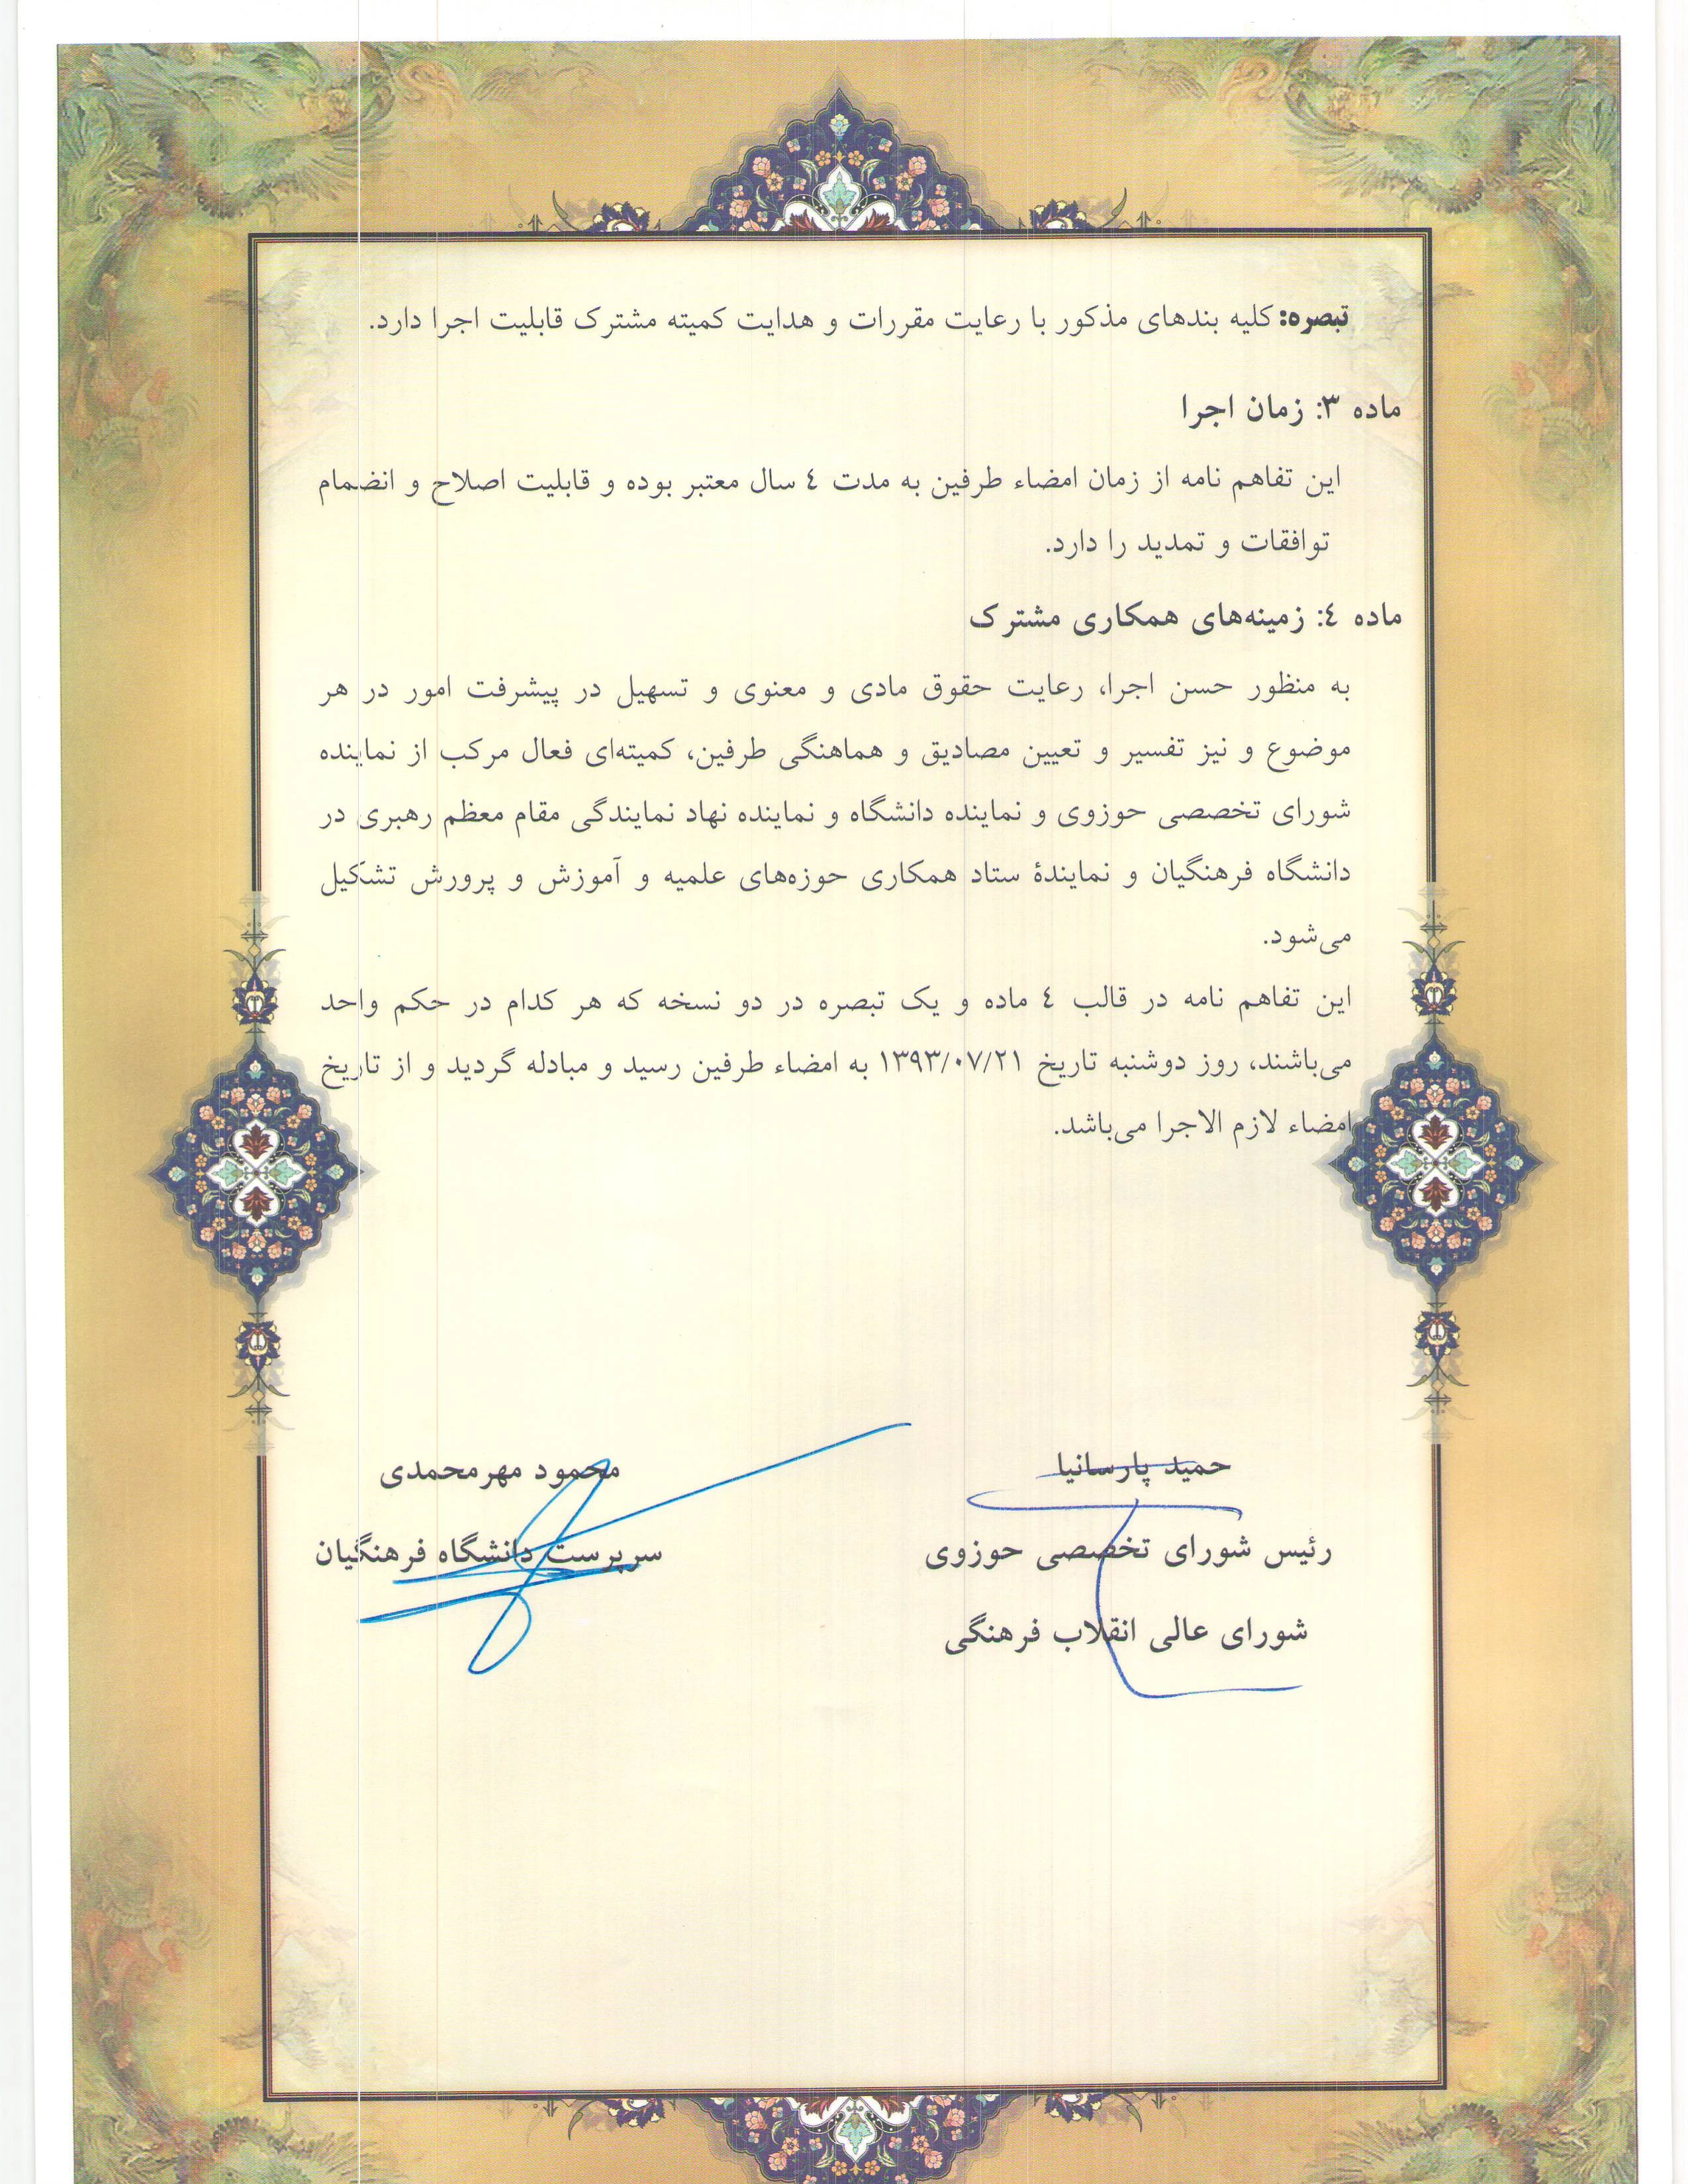 تبصره: کلیه بندهای مذکور با رعایت مقررات و هدایت کمیته مشترک قابلیت اجرا دارد.
ماده ۳: زمان اجرا
این تفاهم نامه از زمان امضاء طرفین به مدت ٤ سال معتبر بوده و قابلیت اصلاح و انضمام
توافقات و تمدید را دارد.
ماده ٤: زمینه‌های همکاری مشترک
به منظور حسن اجرا، رعایت حقوق مادی و معنوی و تسهیل در پیشرفت امور در هر
موضوع و نیز تفسیر و تعیین مصادیق و هماهنگی طرفین، کمیته‌ای فعال مرکب از نماینده
شورای تخصصی حوزوی و نماینده دانشگاه و نماینده نهاد نمایندگی مقام معظم رهبری در
دانشگاه فرهنگیان و نمایندۀ ستاد همکاری حوزه‌های علمیه و آموزش و پرورش تشکیل
می‌شود.
این تفاهم نامه در قالب ٤ ماده و یک تبصره در دو نسخه که هر کدام در حکم واحد
می‌باشند، روز دوشنبه تاریخ ۱۳۹۳/۰۷/۲۱ به امضاء طرفین رسید و مبادله گردید و از تاریخ
امضاء لازم الاجرا می‌باشد.
حمید پارسانیا
رئیس شورای تخصصی حوزوی
شورای عالی انقلاب فرهنگی
محمود مهرمحمدی
سرپرست دانشگاه فرهنگیان